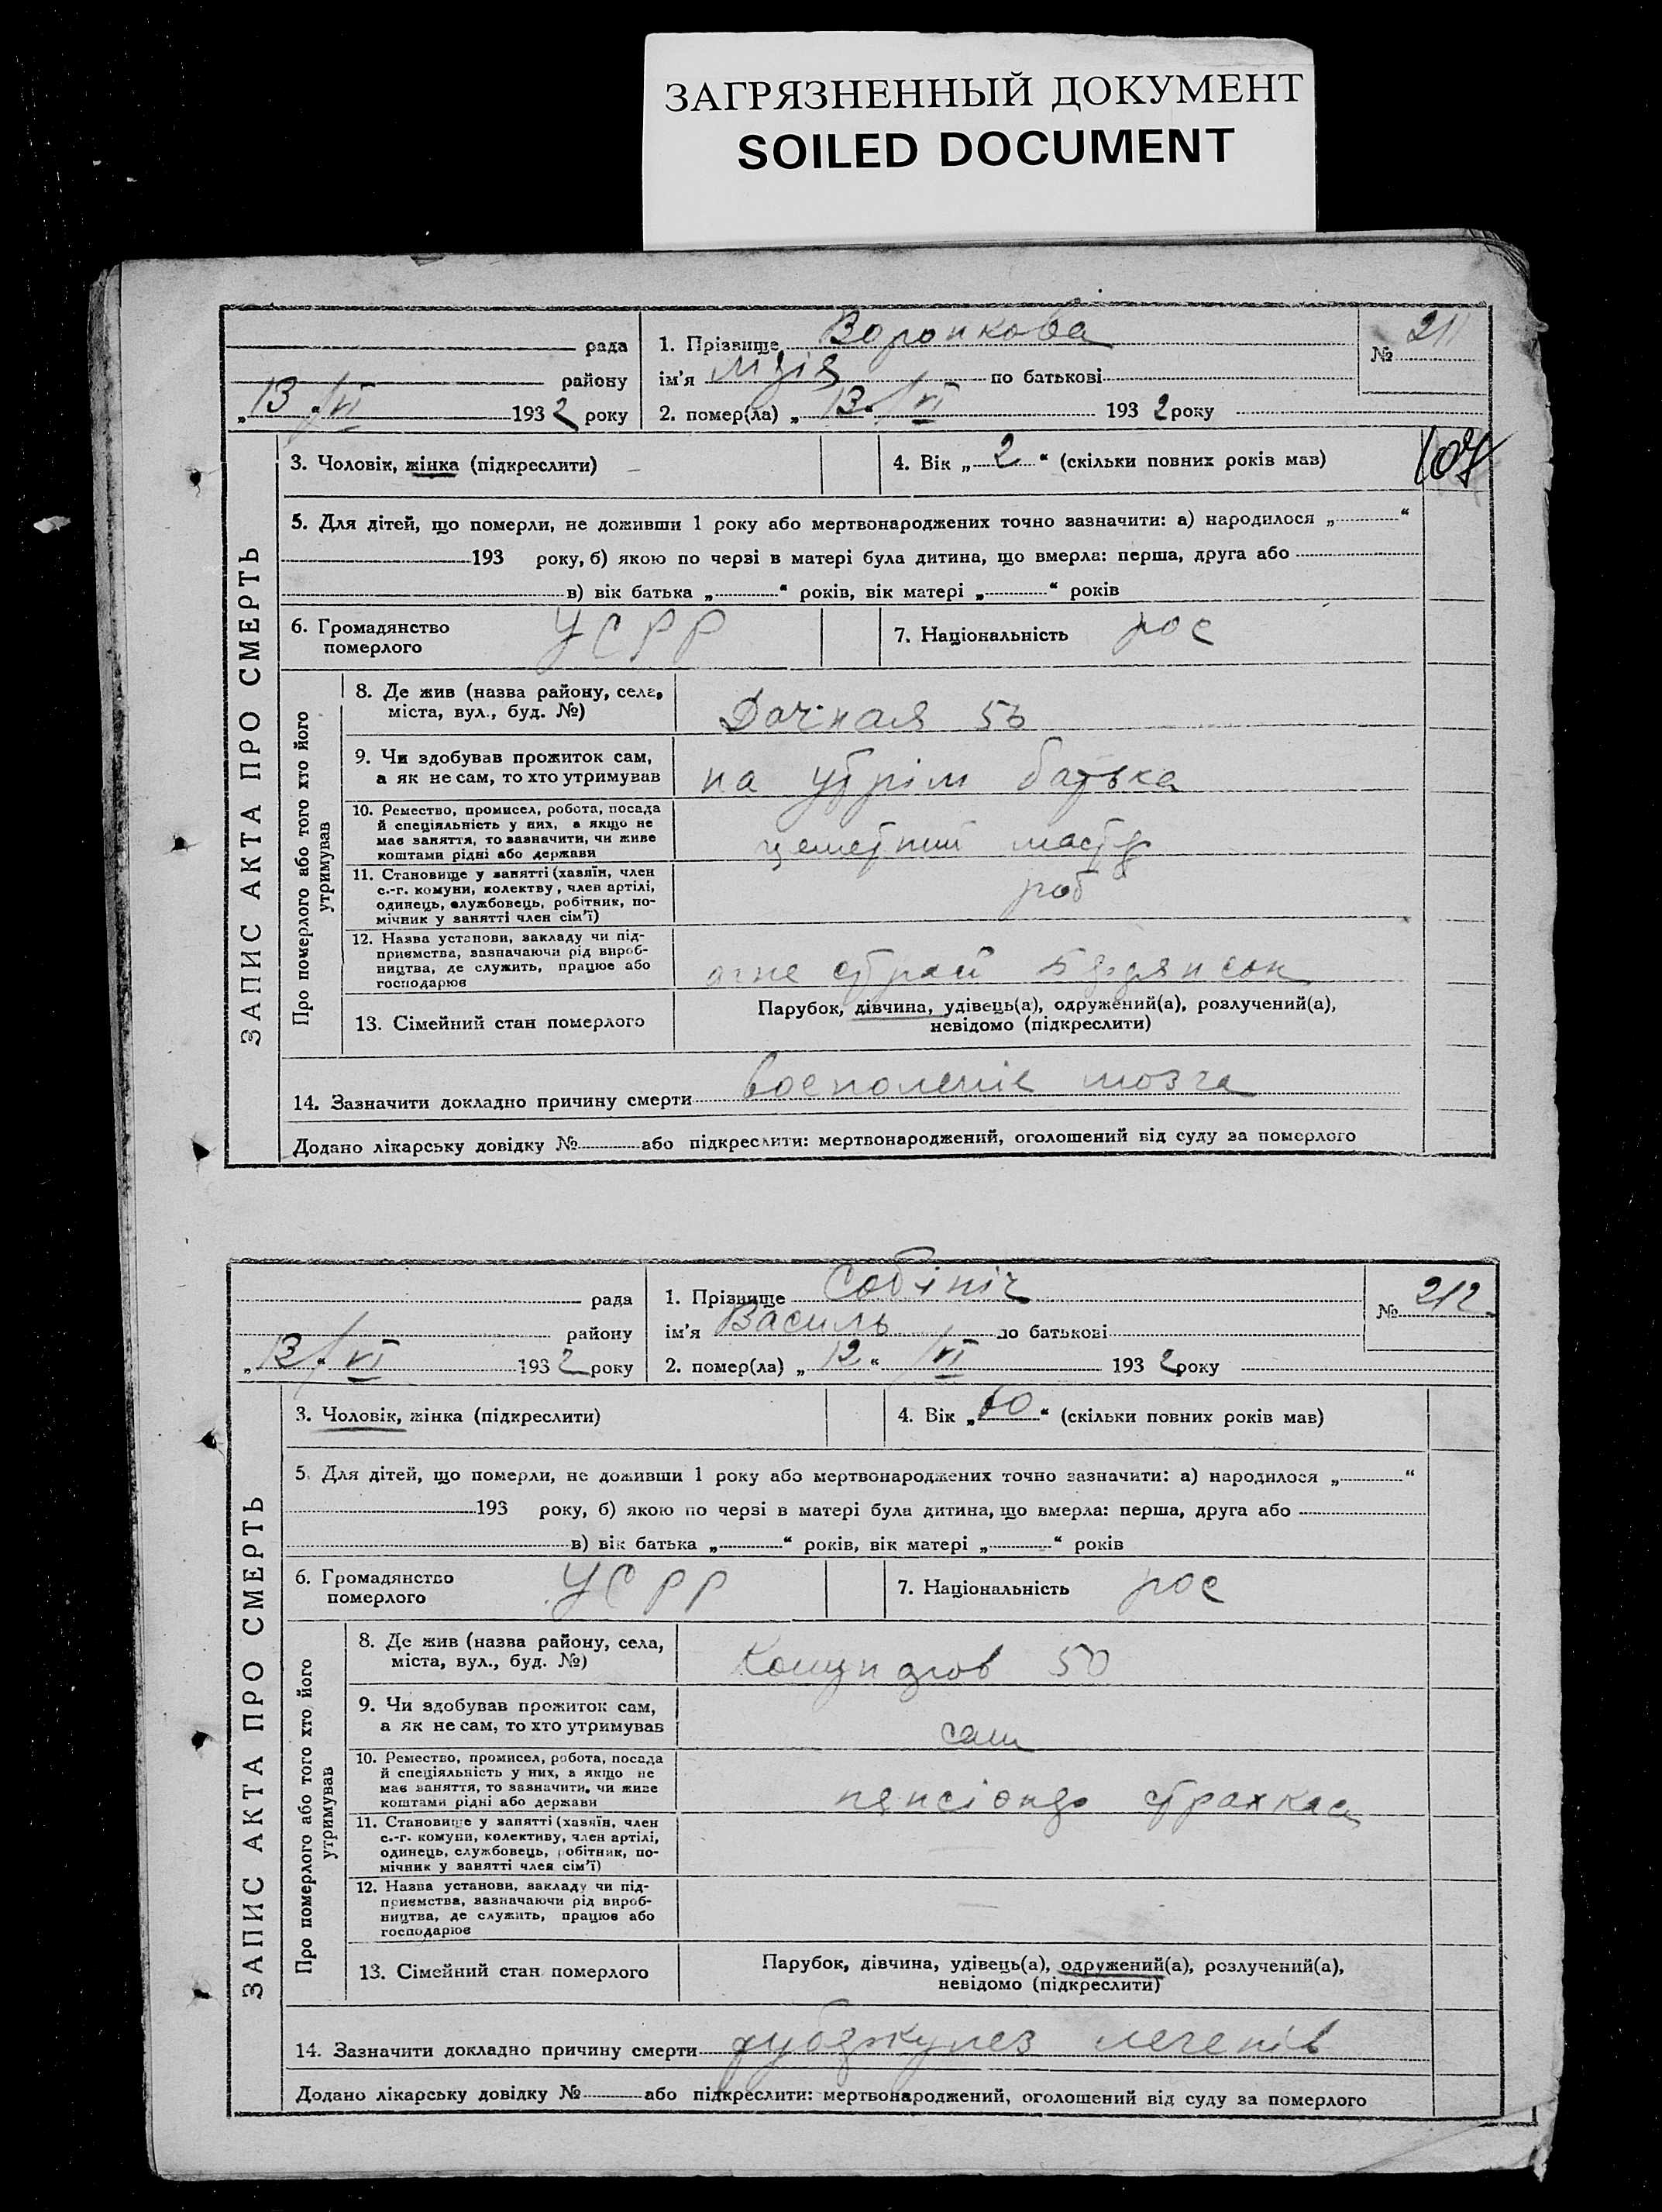 ЗАГРЯЗНЕННЫЙ ДОКУМЕНТ
SOILED DOCUMENT
рада
району
„13“/VI 1932 року
1. Прізвище Воронкова
ім'я по батькові
2. помер(ла) „13“/VI 1932 року
№ 211
107
ЗАПИС АКТА ПРО СМЕРТЬ
3. Чоловік, жінка (підкреслити)
4. Вік „2“ (скільки повних років мав)
5. Для дітей, що померли, не доживши 1 року або мертвонароджених точно зазначити: а) народилося „ “
193 року, б) якою по черзі в матері була дитина, що вмерла: перша, друга або
в) вік батька „ “ років, вік матері „ “ років
6. Громадянство
померлого
УСРР
7. Національність рос
Про померлого або того хто його
утримував
8. Де жив (назва району, села,
міста, вул., буд. №)
Дачная
9. Чи здобував прожиток сам,
а як не сам, то хто утримував
на утрім батька
10. Ремество, промисел, робота, посада
й спеціяльність у них, а якщо не
має заняття, то зазначити, чи живе
коштами рідні або держави
11. Становище у занятті (хазяїн, член
с.-г. комуни, колектву, член артілі,
одинець, службовець, робітник, по-
мічник у занятті член сім'ї)
роб
12. Назва установи, закладу чи під-
приємства, зазначаючи рід вироб-
ництва, де служить, працює або
господарює
13. Сімейний стан померлого
Парубок, дівчина, удівець(а), одружений(а), розлучений(а),
невідомо (підкреслити)
14. Зазначити докладно причину смерти восполеніе мозга
Додано лікарську довідку № або підкреслити: мертвонароджений, оголошений від суду за померлого
рада
району
„13“/VI 1932 року
1. Прізвище
ім'я Василь по батькові
2. помер(ла) „12“ /VI 1932 року
№ 212
ЗАПИС АКТА ПРО СМЕРТЬ
3. Чоловік, жінка (підкреслити)
4. Вік „60“ (скільки повних років мав)
5. Для дітей, що померли, не доживши 1 року або мертвонароджених точно зазначити: а) народилося „ “
193 року, б) якою по черзі в матері була дитина, що вмерла: перша, друга або
в) вік батька „ “ років, вік матері „ “ років
6. Громадянство
померлого
УСРР
7. Національність рос
Про померлого або того хто його
утримував
8. Де жив (назва району, села,
міста, вул., буд. №)
50
9. Чи здобував прожиток сам,
а як не сам, то хто утримував
сам
10. Ремество, промисел, робота, посада
й спеціяльність у них, а якщо не
має заняття, то зазначити, чи живе
коштами рідні або держави
пенсіонер страхкаси
11. Становище у занятті (хазяїн, член
с.-г. комуни, колективу, член артілі,
одинець, службовець, робітник, по-
мічник у занятті член сім'ї)
12. Назва установи, закладу чи під-
приємства, зазначаючи рід вироб-
ництва, де служить, працює або
господарює
13. Сімейний стан померлого
Парубок, дівчина, удівець(а), одружений(а), розлучений(а),
невідомо (підкреслити)
14. Зазначити докладно причину смерти туберкулез легенів
Додано лікарську довідку № або підкреслити: мертвонароджений, оголошений від суду за померлого